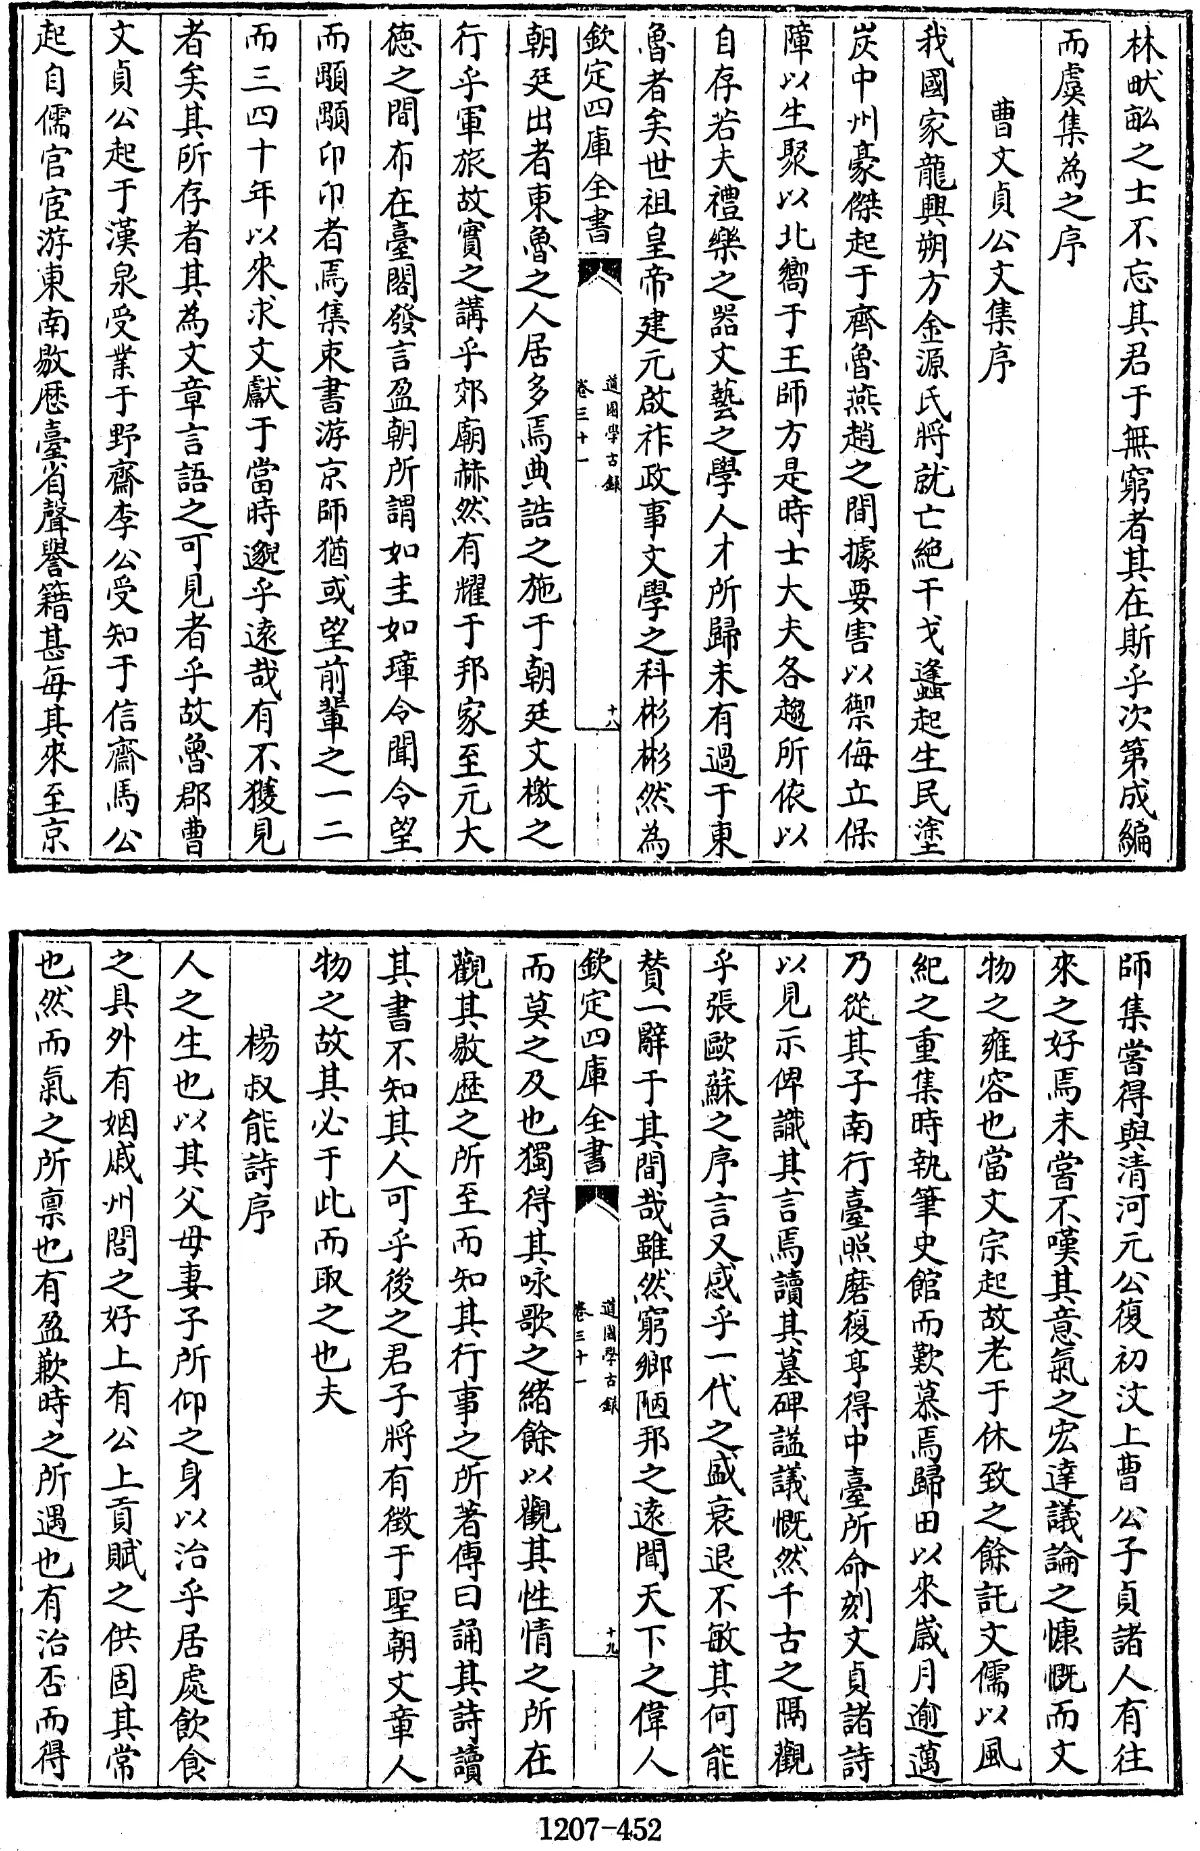 林畎畝之士不忘其君于無窮者其在斯乎次第成編
而虞集為之序
曹文貞公文集序
我國家龍興朔方金源氏將就亡絶干戈蠭起生民塗
炭中州豪傑起于齊魯燕趙之間據要害以禦侮立保
障以生聚以北嚮于王師方是時士大夫各趨所依以
自存若夫禮樂之器文藝之學人才所歸未有過于東
魯者矣世祖皇帝建元啟祚政事文學之科彬彬然為
欽定四庫全書
道園學古録
卷三十一
十八
朝廷出者東魯之人居多焉典誥之施于朝廷文檄之
行乎軍旅故實之講乎郊廟赫然有耀于邦家至元大
徳之間布在臺閣發言盈朝所謂如圭如璋令聞令望
而顒顒卬卬者焉集束書游京師猶或望前輩之一二
而三四十年以來求文獻于當時邈乎遠哉有不獲見
者矣其所存者其為文章言語之可見者乎故魯郡曹
文貞公起于漢泉受業于野齋李公受知于信齋馬公
起自儒官宦游東南敭歴臺省聲譽籍甚每其來至京
師集嘗得與清河元公復初汶上曹公子貞諸人有往
來之好焉未嘗不嘆其意氣之宏達議論之慷慨而文
物之雍容也當文宗起故老于休致之餘託文儒以風
紀之重集時執筆史館而歎慕焉歸田以來歳月逾邁
乃從其子南行臺照磨復亨得中臺所命刻文貞諸詩
以見示俾識其言焉讀其墓碑謚議慨然千古之隔觀
乎張歐蘇之序言又感乎一代之盛衰退不敏其何能
賛一辭于其間哉雖然窮鄉陋邦之遠聞天下之偉人
欽定四庫全書
道園學古録
卷三十一
十九
而莫之及也獨得其咏歌之緒餘以觀其性情之所在
觀其敭歴之所至而知其行事之所著傳曰誦其詩讀
其書不知其人可乎後之君子將有徴于聖朝文章人
物之故其必于此而取之也夫
楊叔能詩序
人之生也以其父母妻子所仰之身以治乎居處飲食
之具外有姻戚州閭之好上有公上貢賦之供固其常
也然而氣之所禀也有盈歉時之所遇也有治否而得
1207-452